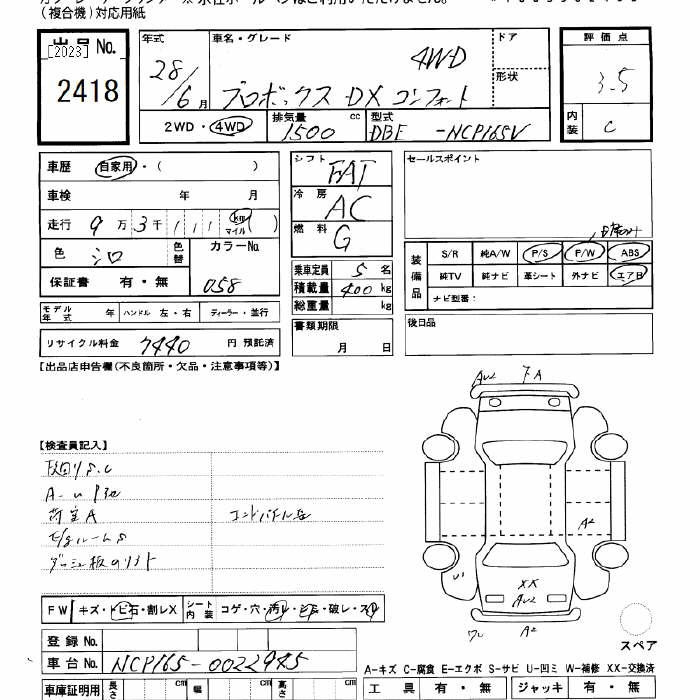 (複合機)対応用紙
出品 No.
[2023]
2418
年式 28/6月
車名・グレード 4WD
プロボックス DX コンフォート
ドア
形状
2WD・4WD 排気量 1500 cc 型式 DBE -NCP165V
評価点
3.5
内装 C
車歴 自家用・( )
車検 年 月
走行 9万3千111 km マイル ( )
色 シロ 色替 カラーNo. 058
保証書 有・無
モデル年式 年 ハンドル 左・右 ディーラー・並行
リサイクル料金 7440 円 預託済
シフト FAT
冷房 AC
燃料 G
乗車定員 5 名
積載量 400 kg
総重量 kg
書類期限
月 日
セールスポイント
装備品 S/R 純A/W P/S P/W ABS
純TV 純ナビ 革シート 外ナビ エアB
ナビ型番:
後日品
【出品店申告欄(不良箇所・欠品・注意事項等)】
【検査員記入】
A-U P30
荷室A
ダッシュ板のリフト
AU2 下A
A2
U1
XX
AU2
A2
スペア
FW キズ・トビ石・割レX シート内装 コゲ・穴・汚レ・ヒモ・破レ・スレ
登録 No.
車台 No. NCP165-0022945
A-キズ C-腐食 E-エクボ S-サビ U-凹ミ W-補修 XX-交換済
車庫証明用 長さ cm 幅 cm 高さ cm
工具 有・無 ジャッキ 有・無